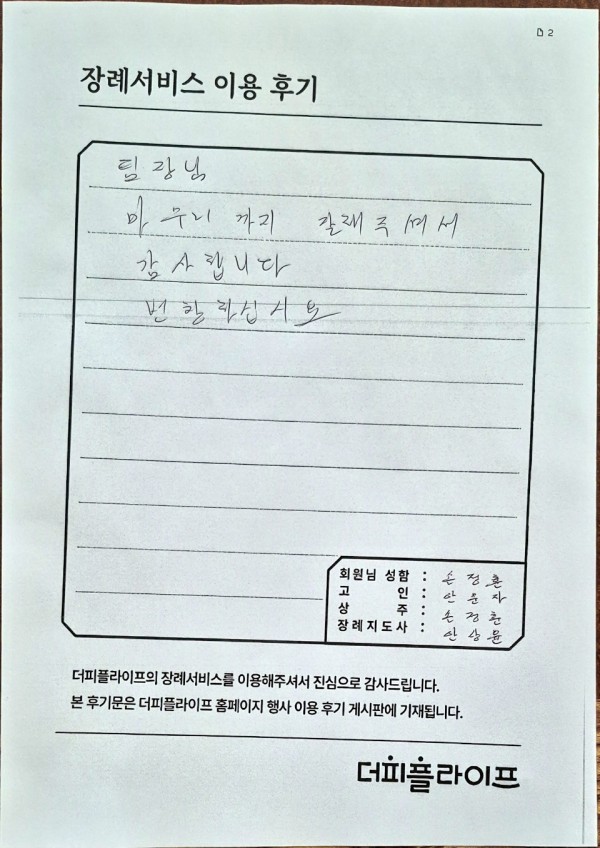 B2
장례서비스 이용 후기
팀장님
마무리까지 잘해주셔서
감사합니다
번창하십시요
회원님 성함 : 손정훈
고 인 : 안윤자
상 주 : 손정훈
장례지도사 : 안상윤
더피플라이프의 장례서비스를 이용해주셔서 진심으로 감사드립니다.
본 후기문은 더피플라이프 홈페이지 행사 이용 후기 게시판에 기재됩니다.
더피플라이프